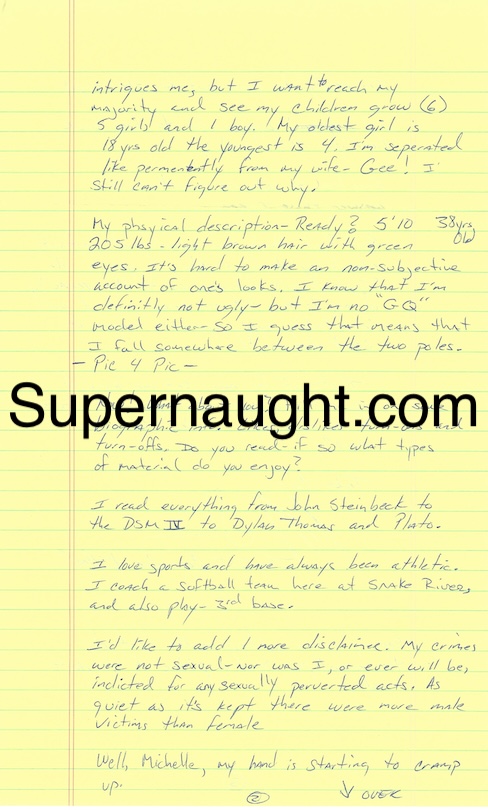 intrigues me, but I want to reach my
majority and see my children grow (6)
5 girls and 1 boy. My oldest girl is
18 yrs old the youngest is 4. I'm seperated
like permenently from my wife- Gee! I
still can't figure out why.
My phsyical description- Ready? 5'10 38yrs old
205 lbs - light brown hair with green
eyes. It's hard to make an non-subjective
account of one's looks. I know that I'm
definitly not ugly- but I'm no "GQ"
model either- So I guess that means that
I fall somewhere between the two poles.
- Pic 4 Pic -
Supernaught.com
turn-offs. Do you read- if so what types
of material do you enjoy?
I read everything from John Steinbeck to
the DSM IV to Dylan Thomas and Plato.
I love sports and have always been athletic.
I coach a softball team here at Snake River,
and also play- 3rd base.
I'd like to add 1 more disclaimer. My crimes
were not sexual- nor was I, or ever will be,
indicted for any sexually perverted acts. As
quiet as it's kept there were more male
victims than female
Well, Michelle, my hand is starting to cramp
up.
2 ↓ OVER